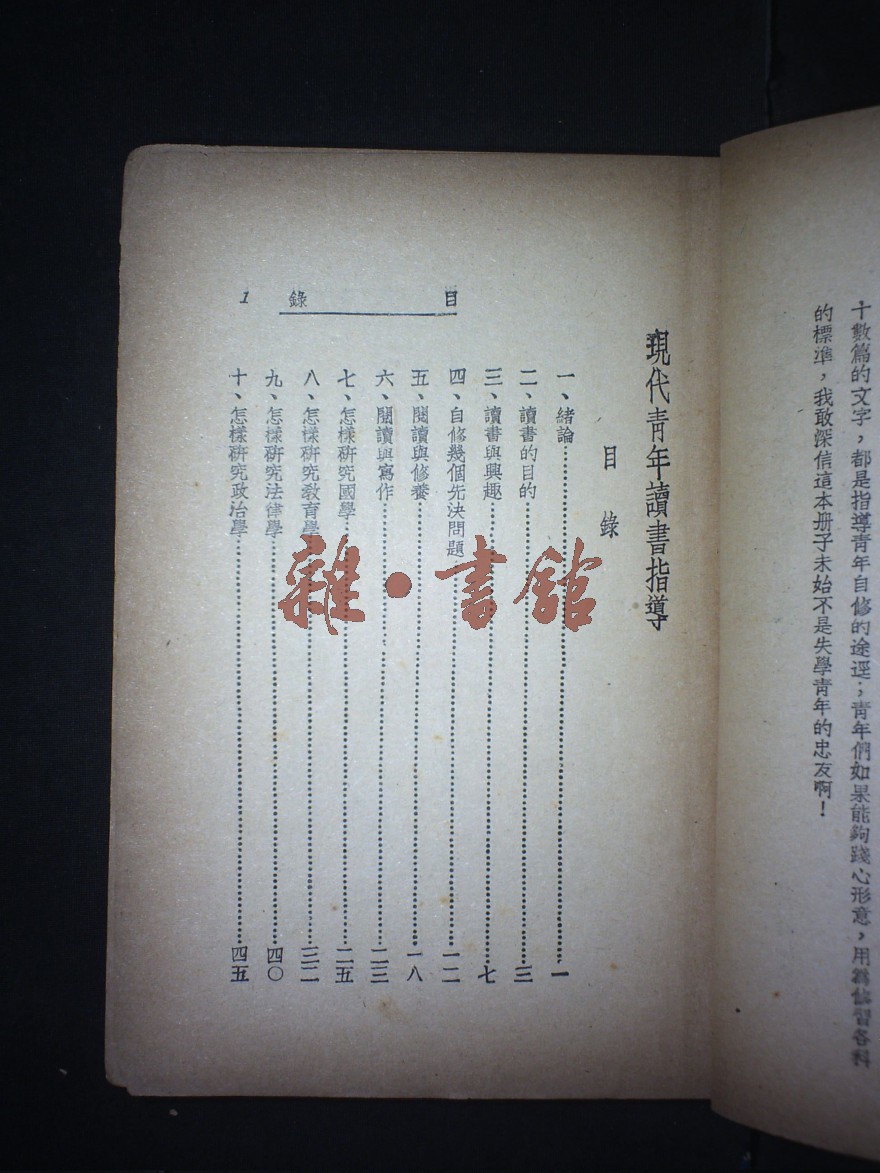 十數篇的文字，都是指導青年自修的途逕；青年們如果能夠踐心形意，用爲修習各科
的標準，我敢深信這本册子未始不是失學青年的忠友啊！
現代青年讀書指導
目錄
一、緒論…………一
二、讀書的目的…………三
三、讀書與興趣…………七
四、自修幾個先決問題…………一二
五、閱讀與修養…………一八
六、閱讀與寫作…………二三
七、怎樣研究國學…………二五
八、怎樣研究教育學…………三二
九、怎樣研究法律學…………四〇
十、怎樣研究政治學…………四五
目錄 1
雜·書館